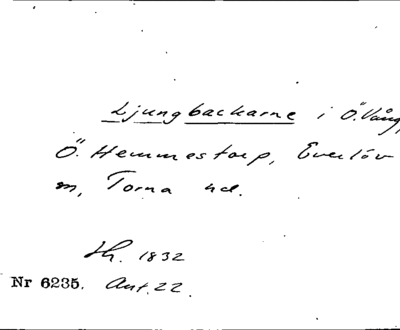 Ljungbackarne i Ö. Vång,
Ö. Hemmestorp, Everlöv
sn, Torna hd.
Sk. 1832
Nr 6235. Ant. 22.